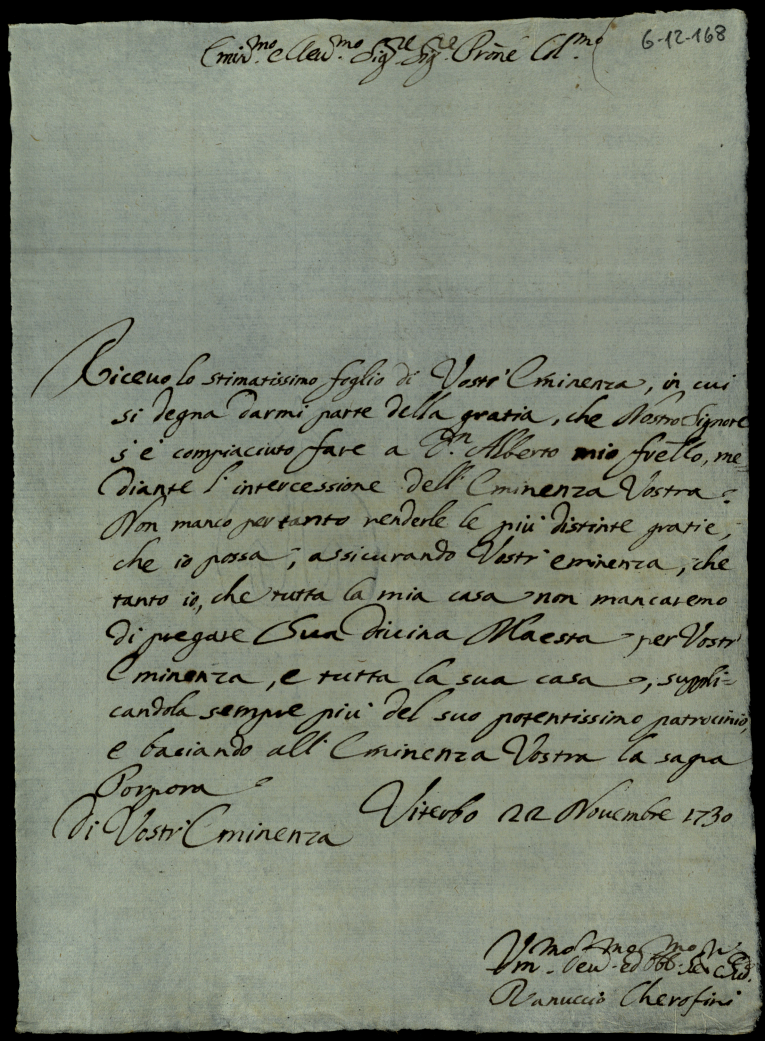 6-12-168
Emin.mo e Reu.mo Sig.re Sig.re Prone Col.mo
Riceuo lo stimatissimo foglio di Vostr' Eminenza, in cui
si degna darmi parte della gratia, che Nostro Signore
s'è compiaciuto fare a D.n Alberto mio frello, me=
diante l'intercessione dell'Eminenza Vostra.
Non manco per tanto renderle le più distinte gratie,
che io possa, assicurando Vostr'eminenza, che
tanto io, che tutta la mia casa non mancaremo
di pregare Sua Diuina Maestà per Vostr'
Eminenza, e tutta la sua casa, suppli=
candola sempre più del suo potentissimo patrocinio,
e baciando all'Eminenza Vostra la sagra
Porpora
Di Vostr'Eminenza Viterbo 22 Nouembre 1730
Vm.mo Deu.mo ed Obb.mo
Ranuccio Cherofini